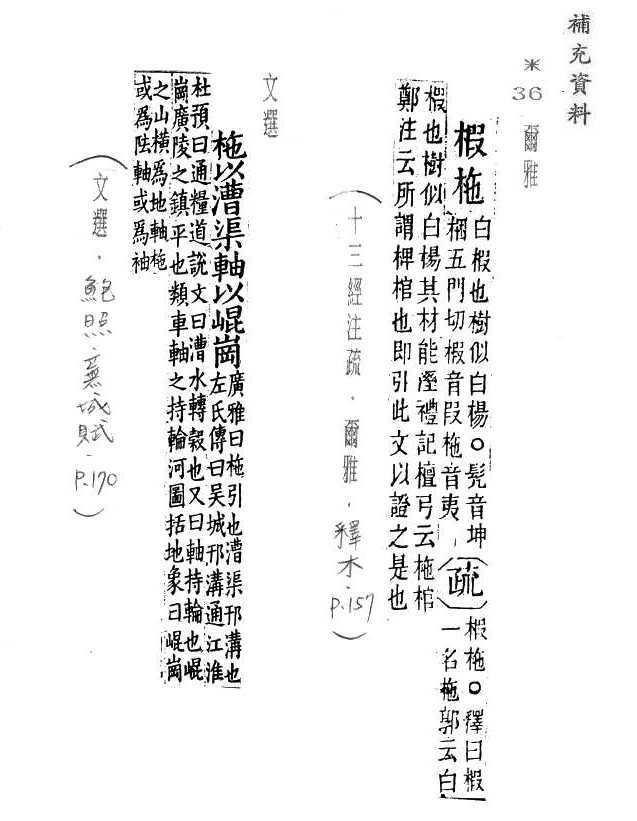 補充資料
＊36 爾雅
椵柂
白椵也樹似白楊○髡音坤
五門切椵音段柂音夷
疏
椵柂○釋曰椵
一名柂郭云白
椵也樹似白楊其材能溼禮記檀弓云柂棺
鄭注云所謂椑棺也即引此文以證之是也
(十三經注疏．爾雅．釋木．p.157)
文選
柂以漕渠軸以崐崗
廣雅曰柂引也漕渠邗溝也
左氏傳曰吴城邗溝通江淮
杜預曰通糧道說文曰漕水轉轂也又曰軸持輪也崐
崗廣陵之鎮平也類車軸之持輪河圖括地象曰崐崗
之山橫爲地軸柂
或爲阹軸或爲袖
(文選．鮑照．蕪城賦．p.170)